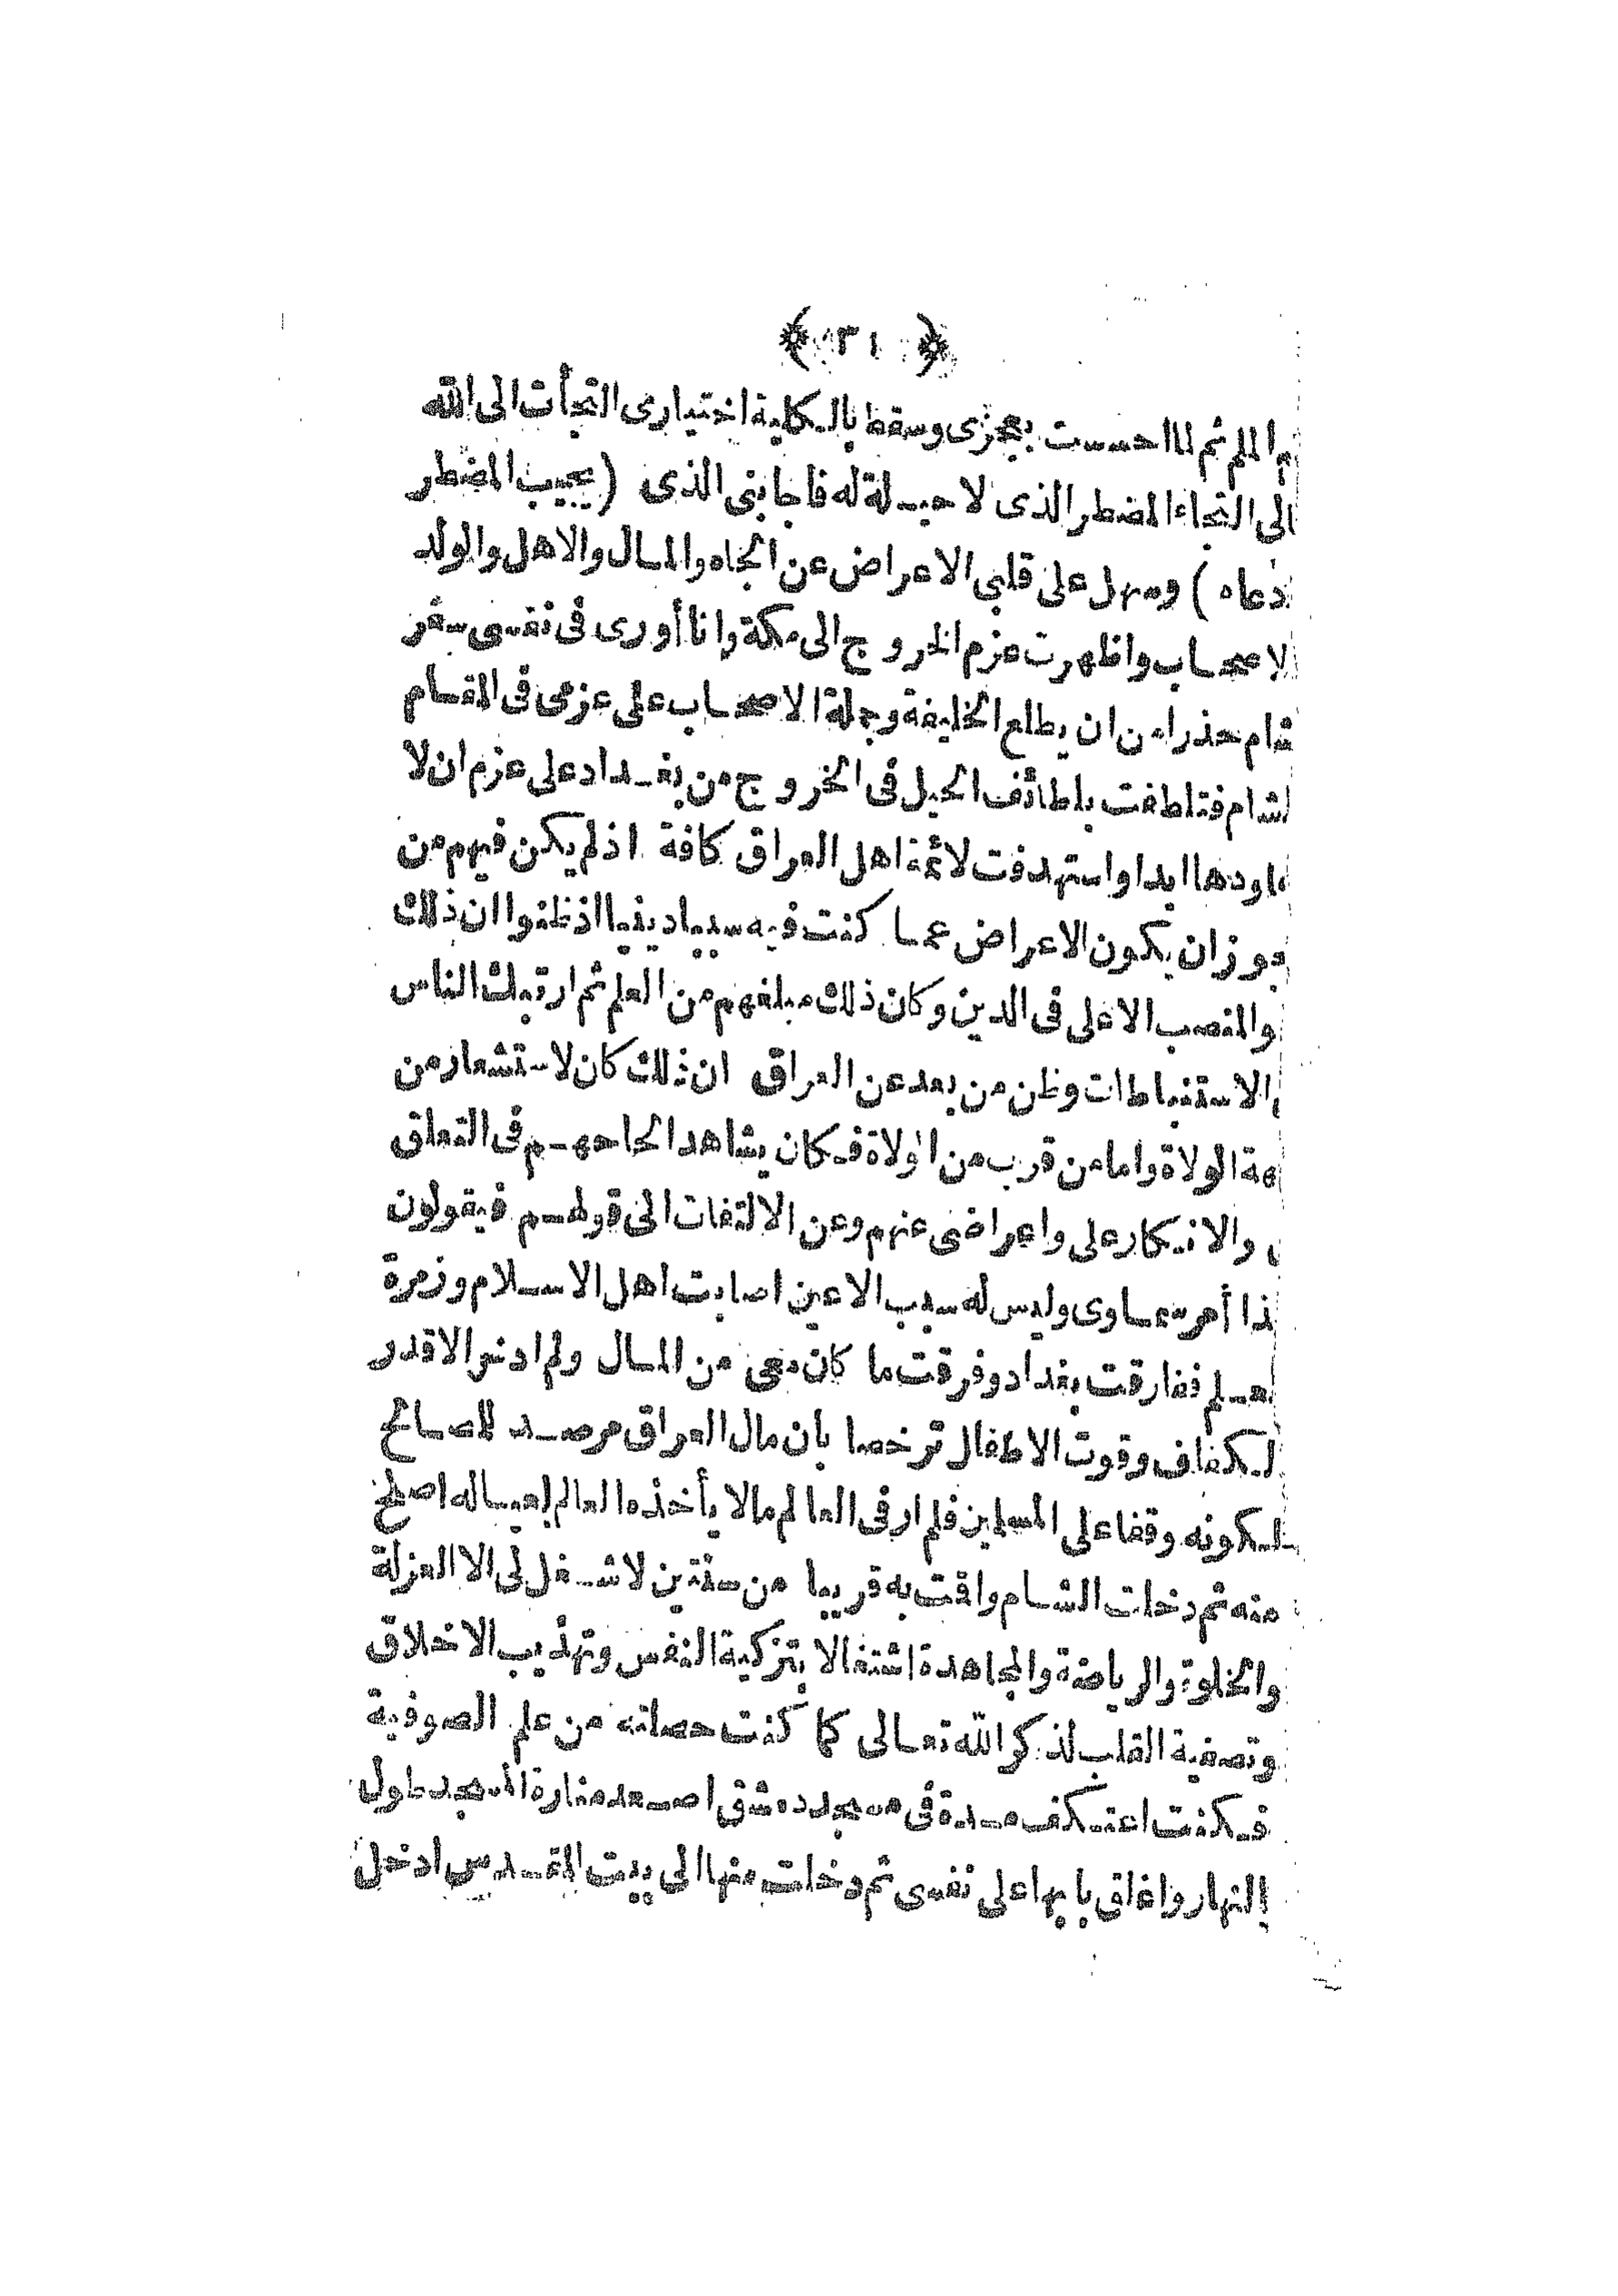 ﴿ ٣١ ﴾
الملم ثم لما احسست بعجزى وسقط بالكلية اختيارى التجأت الى الله
الى التجاء المضطر الذى لا حيلة له فاجابنى الذى (يجيب المضطر
دعاه) وسهل على قلبى الاعراض عن الجاه والمال والاهل والولد
لاصحاب واظهرت عزم الخروج الى مكة وانا أورى فى نفسى سفر
شام حذرا من ان يطلع الخليفة وجملة الاصحاب على عزمى فى المقام
لشام فتلطفت بلطائف الحيل فى الخروج من بغداد على عزم ان لا
اودها ابدا واستهدفت لائمة اهل العراق كافة اذ لم يكن فيهم من
جوز ان يكون الاعراض عما كنت فيه سببا دينيا اذ ظنوا ان ذلك
والمنصب الاعلى فى الدين وكان ذلك مبلغهم من العلم ثم ارتبك الناس
الاستنباطات وظن من بعد عن العراق ان ذلك كان لاستشعار من
هة الولاة واما من قرب من الولاة فكان يشاهد الحاحهم فى التعلق
والانكار على واعراضى عنهم وعن الالتفات الى قولهم فيقولون
ذا أمر سماوى وليس له سبب الا عين اصابت اهل الاسلام وزمرة
لعلم ففارقت بغداد وفرقت ما كان معى من المال ولم ادخر الا قدر
لكفاف وقوت الاطفال ترخصا بأن مال العراق مرصد للمصالح
لكونه وقفا على المسلمين فلم ار فى العالم مالا يأخذه العالم لعياله اصلح
منه ثم دخلت الشام واقت به قريبا من سنتين لا شغل لى الا العزلة
والخلوة والرياضة والمجاهدة اشتغالا بتزكية النفس وتهذيب الاخلاق
وتصفية القلب لذكر الله تعالى كما كنت حصلته من علم الصوفية
فكنت اعتكف مدة فى مسجد دمشق اصعد منارة المسجد طول
النهار واغلق بابها على نفسى ثم دخلت منها الى بيت المقدس ادخل